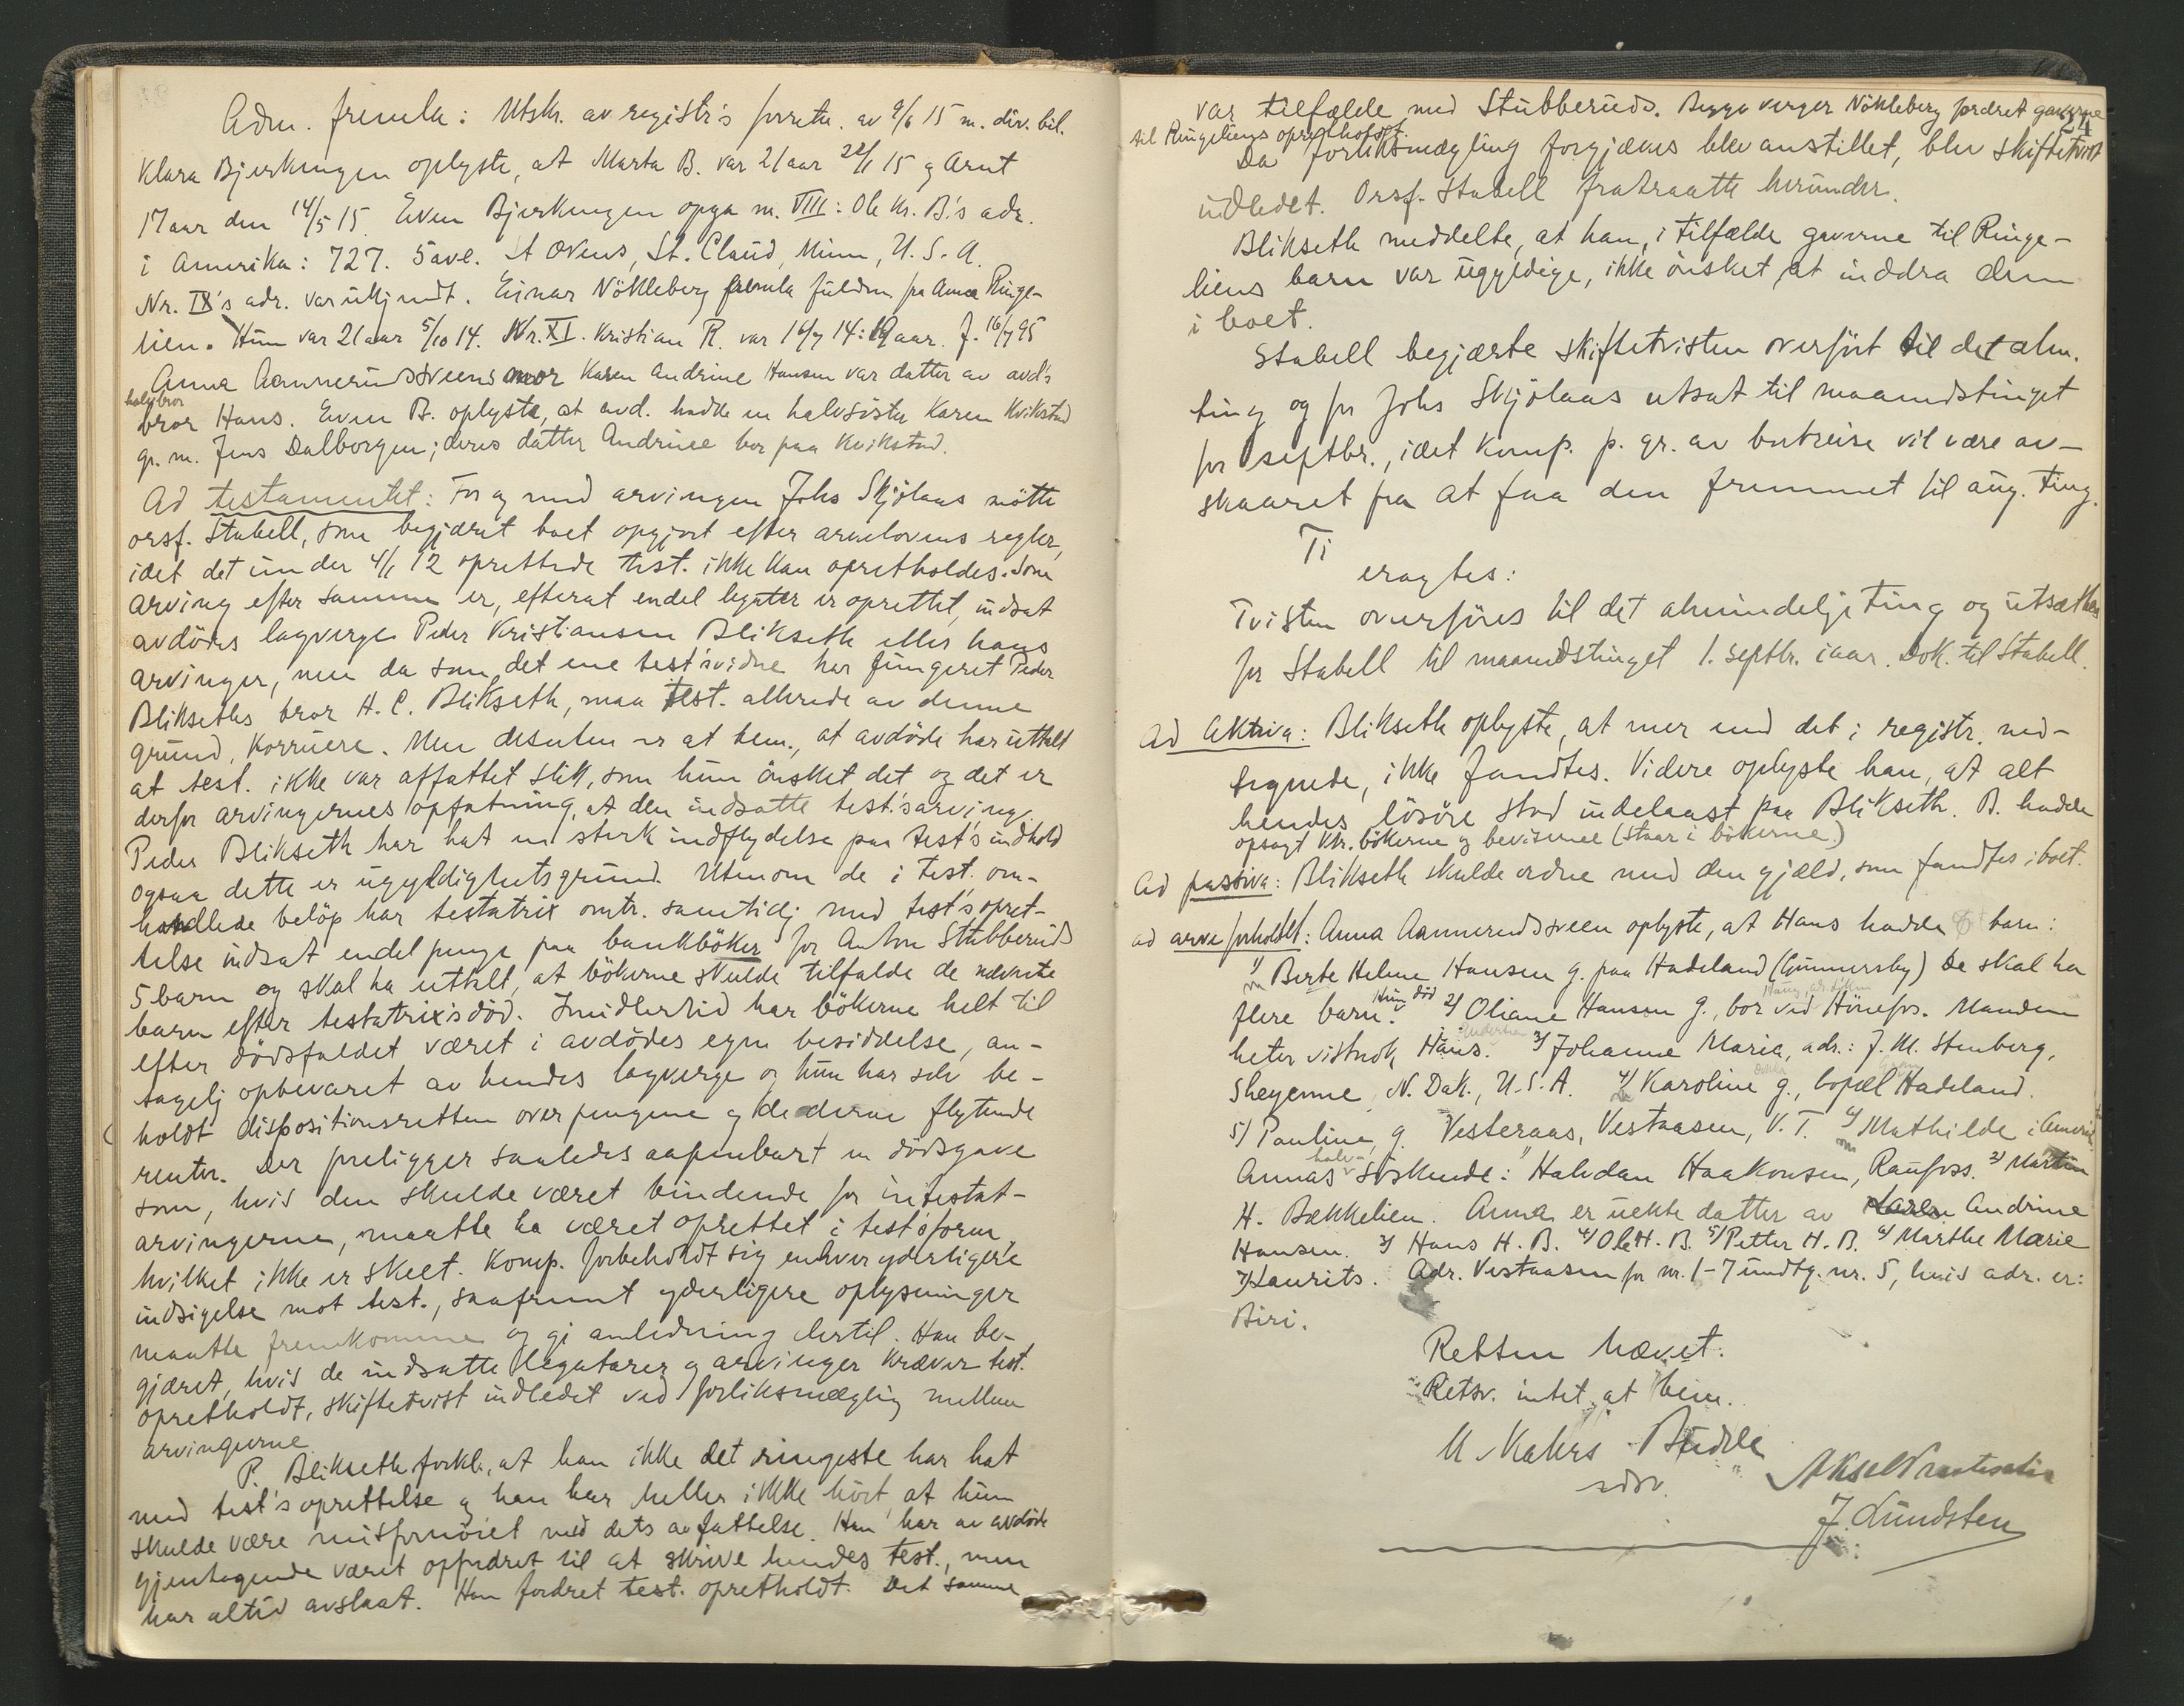 Adm. fremla: Utskr. av registr's forretn. av 9/6 15 m. div. bil.
Klara Bjerkengen oplyste, at Marta B. var 21 aar 22/1 15 g Arnt
17 aar den 14/5 15. Even Bjerkengen opga m. VIII: Ole Kr. B.'s adr.
i Amerika: 727. 5 ave. St. Claud, Minn, U.S.A.
Nr. IX's adr. var ukjendt. Einar Nökleberg fremla fuldm. fra Anna Ringe-
lien. Hun var 21 aar 5/10 14. Nr. XI. Kristian R. var 16/7 14: 19 aar. f. 16/7 95
Anna Aannerudsveens mor Karen Andrine Hansen var datter av avd's
halvbror
bror Hans. Even B. oplyste, at avd. hadde en halvsöster Karen Kvikstad
g. m. Jens Dalborgen; deres datter Andrine bor paa Kvikstad.
Ad testamentet: For og med arvingen Johs Skjölaas mötte
orsf. Stabell, som begjæret boet opgjort efter arvelovens regler,
idet det under 4/1 12 oprettede test. ikke kan opretholdes. Som
arving efter samme er, efterat endel legater er oprettet, indsat
avdödes lagverge Peder Kristiansen Blikseth eller hans
arvinger, men da som det ene test'svidne har fungeret Peder
Blikseths bror H. C. Blikseth, maa test. allerede av denne
grund, korruere. Men desuten er at bem., at avdöde har uttalt
at test. ikke var affattet slik, som hun önsket det og det er
derfor arvingernes opfatning, at den indsatte test.'sarving
Peder Blikseth har hat en sterk indflydelse paa test's indhold
ogsaa dette er ugyldighetsgrund. Utenom de i test. om-
handlede belöp har testatrix omtr. samtidig med test's opret-
telse indsat endel penge paa bankböker for Anton Stubberuds
5 barn og skal ha uttalt, at bökerne skulde tilfalde de nævnte
barn efter testatrix's död. Imidlertid har bökerne helt til
efter dödsfaldet været i avdödes egen besiddelse, an-
tagelig opbevaret av hendes lagverge og hun har selv be-
holdt dispositionsretten over pengene g de derav flytende
renter. Der foreligger saaledes aapenbart en dödsgave
som, hvis den skulde været bindende for intestat-
arvingerne, maatte ha været oprettet i test'sform,
hvilket ikke er skeet. Komp. forbeholdt sig enhver yderligere
indsigelse mot test., saafremt yderligere oplysninger
maatte fremkomme og gi anledning dertil. Han be-
gjæret, hvis de indsatte legatarer g arvinger kræver test.
opretholdt, skiftetvist indledet ved forliksmægling mellem
arvingerne
P. Blikseth forkl., at han ikke det ringeste har hat
med test's oprettelse g han har heller ikke hört, at hun
skulde være misfornöiet med dets avfattelse. Han har av avdöde
gjentagende været opfordret til at skrive hendes test., men
har altid avslaat. Han fordret test. opretholdt. Det samme
var tilfælde med Stubberuds. Begge verger Nökleberg fordret gaverne
24
til Ringeliens opretholdt.
Da forliksmægling forgjæves blev anstillet, blev skiftetvist
indledet. Orsf. Stabell fratraatte herunder.
Blikseth meddelte, at han, i tilfælde gaverne til Ringe-
liens barn var ugyldige, ikke önsket at inddra dem
i boet.
Stabell begjærte skiftetvisten overfört til det alm.
ting og for Johs Skjölaas utsat til maanedstinget
for septbr., idet komp. p. gr. av bortreise vil være av-
skaaret fra at faa den fremmet til aug. ting.
Ti
eragtes:
Tvisten overföres til det almindelige ting og utsættes
for Stabell til maanedstinget 1. septbr. i aar. Dok. til Stabell.
Ad Aktiva: Blikseth oplyste, at mer end det i registr. med-
tegnede, ikke fandtes. Videre oplyste han, at alt
hendes lösöre stod indelaast paa Blikseth. B. hadde
opsagt kr. bökerne g beviserne (staar i bökerne)
Ad passiva: Blikseth skulde ordne med den gjæld, som fandtes i boet.
ad arveforholdet: Anna Aannerudsveen oplyste, at Hans hadde barn:
1) Berte Helene Hansen g. paa Hadeland (Gunnersby) De skal ha
flere barn. Hun död 2) Oliane Hansen g., bor ved Hönefos. Manden
heter vistnok Hans. 3) Johanne Maria, adr.: J. M. Stenberg,
Sheyenne, N. Dak., U.S.A. 4) Karoline g., bopæl Hadeland.
5) Pauline, g. Vesteraas, Vestaasen, V. T. 6) Mathilde i Amerika
Annas halv-söskende: 1) Halvdan Haakonsen, Raufoss. 2) Martin
H. Bækkelien. Anna er uekte datter av Karen Andrine
Hansen. 3) Hans H. B. 4) Ole H. B. 5) Petter H. B. 6) Marthe Marie
7) Laurits. Adr. Vestaasen for nr. 1-7 undtg. nr. 5, hvis adr. er:
Biri.
Retten hævet.
Retsv. intet at bem.
M. Kahrs Budde
sdsv.
J. Lundsten